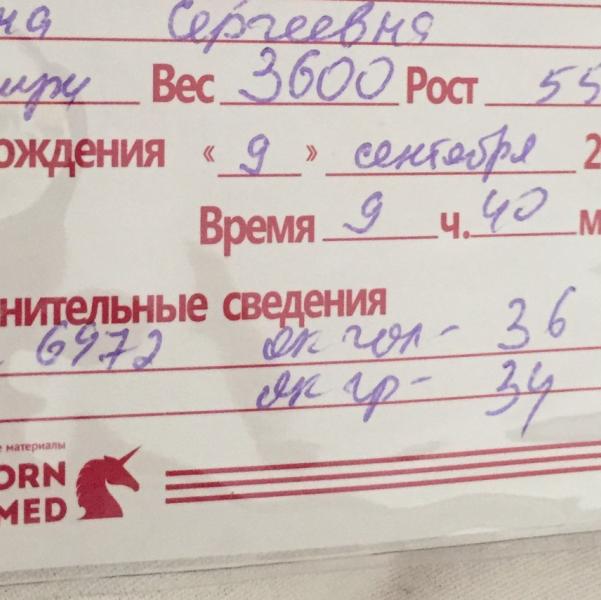 на Сергеевна
Вес 3600 Рост 55
ождения « 9 » сентября 2
Время 9 ч. 40 м
нительные сведения
6972 ок гол - 36
ок гр - 34
е материалы
ORN
MED